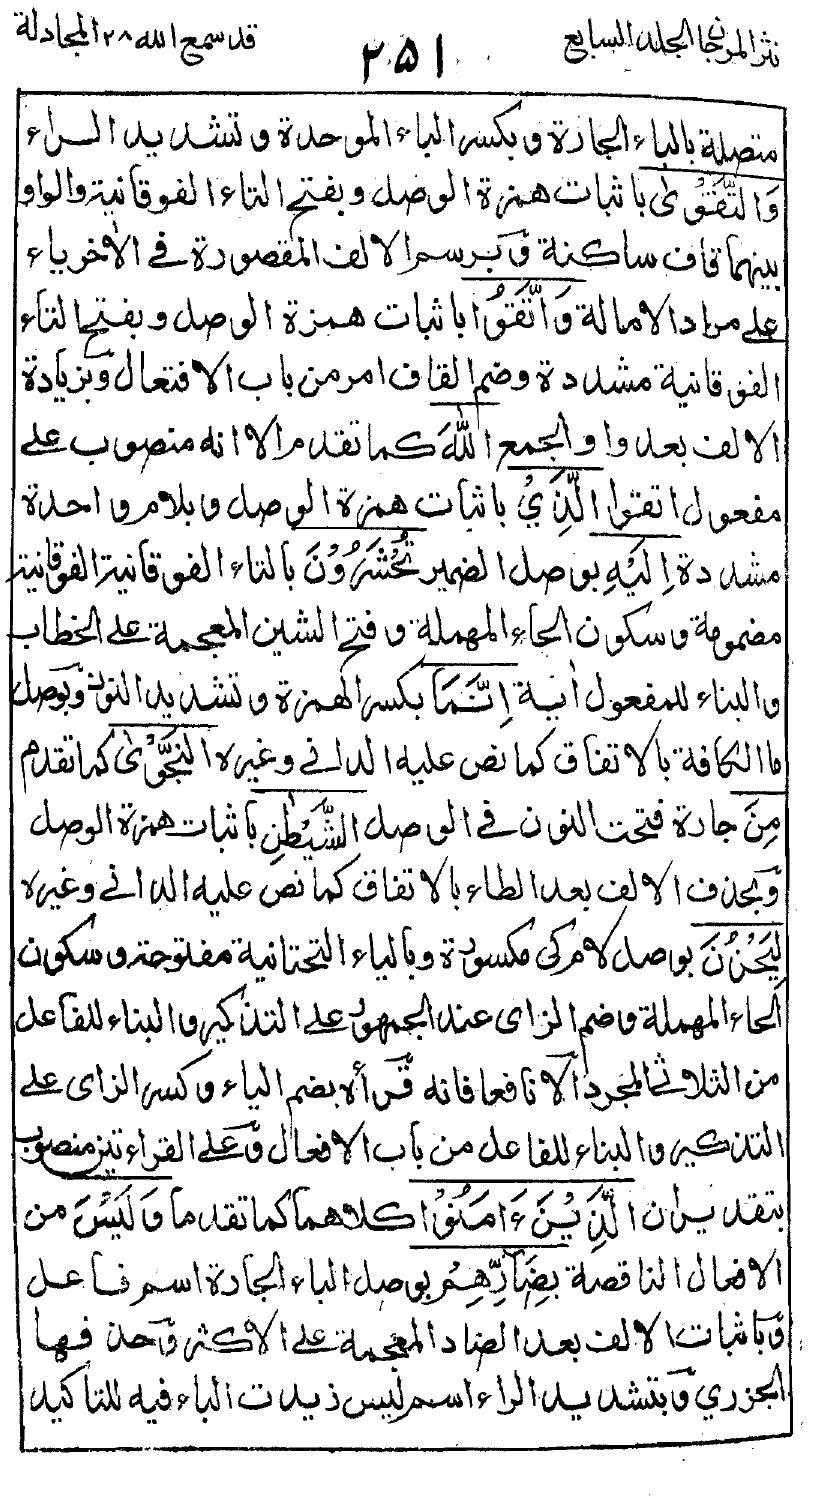 نثر المرجان الجلد السابع
٢٥١
قد سمع الله ٢٨ المجادلة
متصلة بالباء الجارة وبكسر الباء الموحدة وتشديد الراء
وَالتَّقْوٰى باثبات همزة الوصل وبفتح التاء الفوقانية والواو
بينهما قاف ساكنة وبرسم الالف المقصورة فى الاخر ياء
على مراد الامالة وَاتَّقُوْا باثبات همزة الوصل وبفتح التاء
الفوقانية مشددة وضم القاف امر من باب الافتعال وبزيادة
الالف بعد واو الجمع اللّٰهَ كما تقدم الا انه منصوب على
مفعول اتقوا الَّذِيْ باثبات همزة الوصل وبلام واحدة
مشددة اِلَيْهِ بوصل الضمير تُحْشَرُوْنَ بالتاء الفوقانية الفوقانية
مضمومة وسكون الحاء المهملة وفتح الشين المعجمة على الخطاب
والبناء للمفعول اٰية اِنَّمَا بكسر الهمزة وتشديد النون وبوصل
ما الكافة بالاتفاق كما نص عليه الدانى وغيره النَّجْوٰى كما تقدم
مِنَ جارة فتحت النون فى الوصل الشَّيْطٰنِ باثبات همزة الوصل
وبحذف الالف بعد الطاء بالاتفاق كما نص عليه الدانى وغيره
لِيَحْزُنَ بوصل لام كى مكسورة وبالياء التحتانية مفتوحة وسكون
الحاء المهملة وضم الزاى عند الجمهور على التذكير والبناء للفاعل
من الثلاثى المجرد الا نافعا فانه قرأه بضم الياء وكسر الزاى على
التذكير والبناء للفاعل من باب الافعال وعلى القراءتين منصوب
بتقدير ان الَّذِيْنَ ءَامَنُوْا كلاهما كما تقدما وَلَيْسَ من
الافعال الناقصة بِضَآرِّهِمْ بوصل الباء الجارة اسم فاعل
وباثبات الالف بعد الضاد المعجمة على الاكثر وحذفها
الجزري وبتشديد الراء اسم ليس زيدت الباء فيه للتاكيد